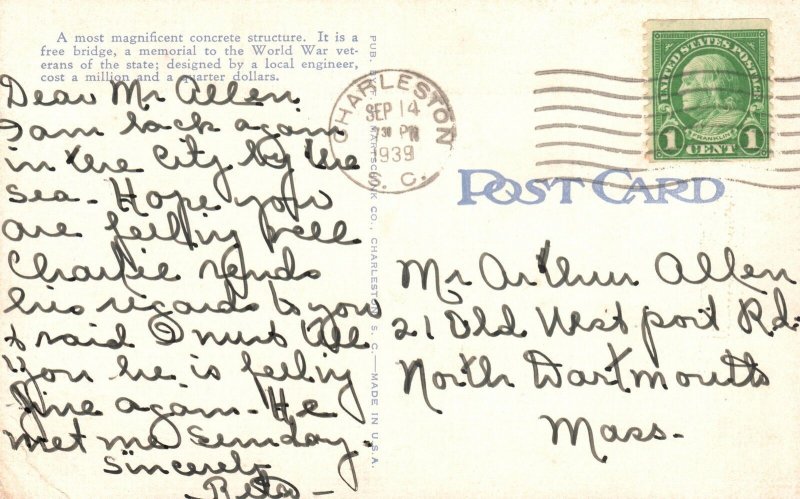 A most magnificent concrete structure. It is a
free bridge, a memorial to the World War vet-
erans of the state; designed by a local engineer,
cost a million and a quarter dollars.
Dear Mr Allen
I am back again
in the City by the
Sea. Hope you
are feeling well
Charlie sends
his regards to you
& said I must tell
you he is feeling
fine again. He
met me Sunday.
Sincerely
PUB. CO., CHARLESTON S. C.—MADE IN U.S.A.
CHARLESTON
SEP 14
30 PM
1939
S. C.
UNITED STATES POSTAGE
FRANKLIN
1 CENT 1
POST CARD
Mr Arthur Allen
21 Old Westport Rd.
North Dartmouth
Mass-